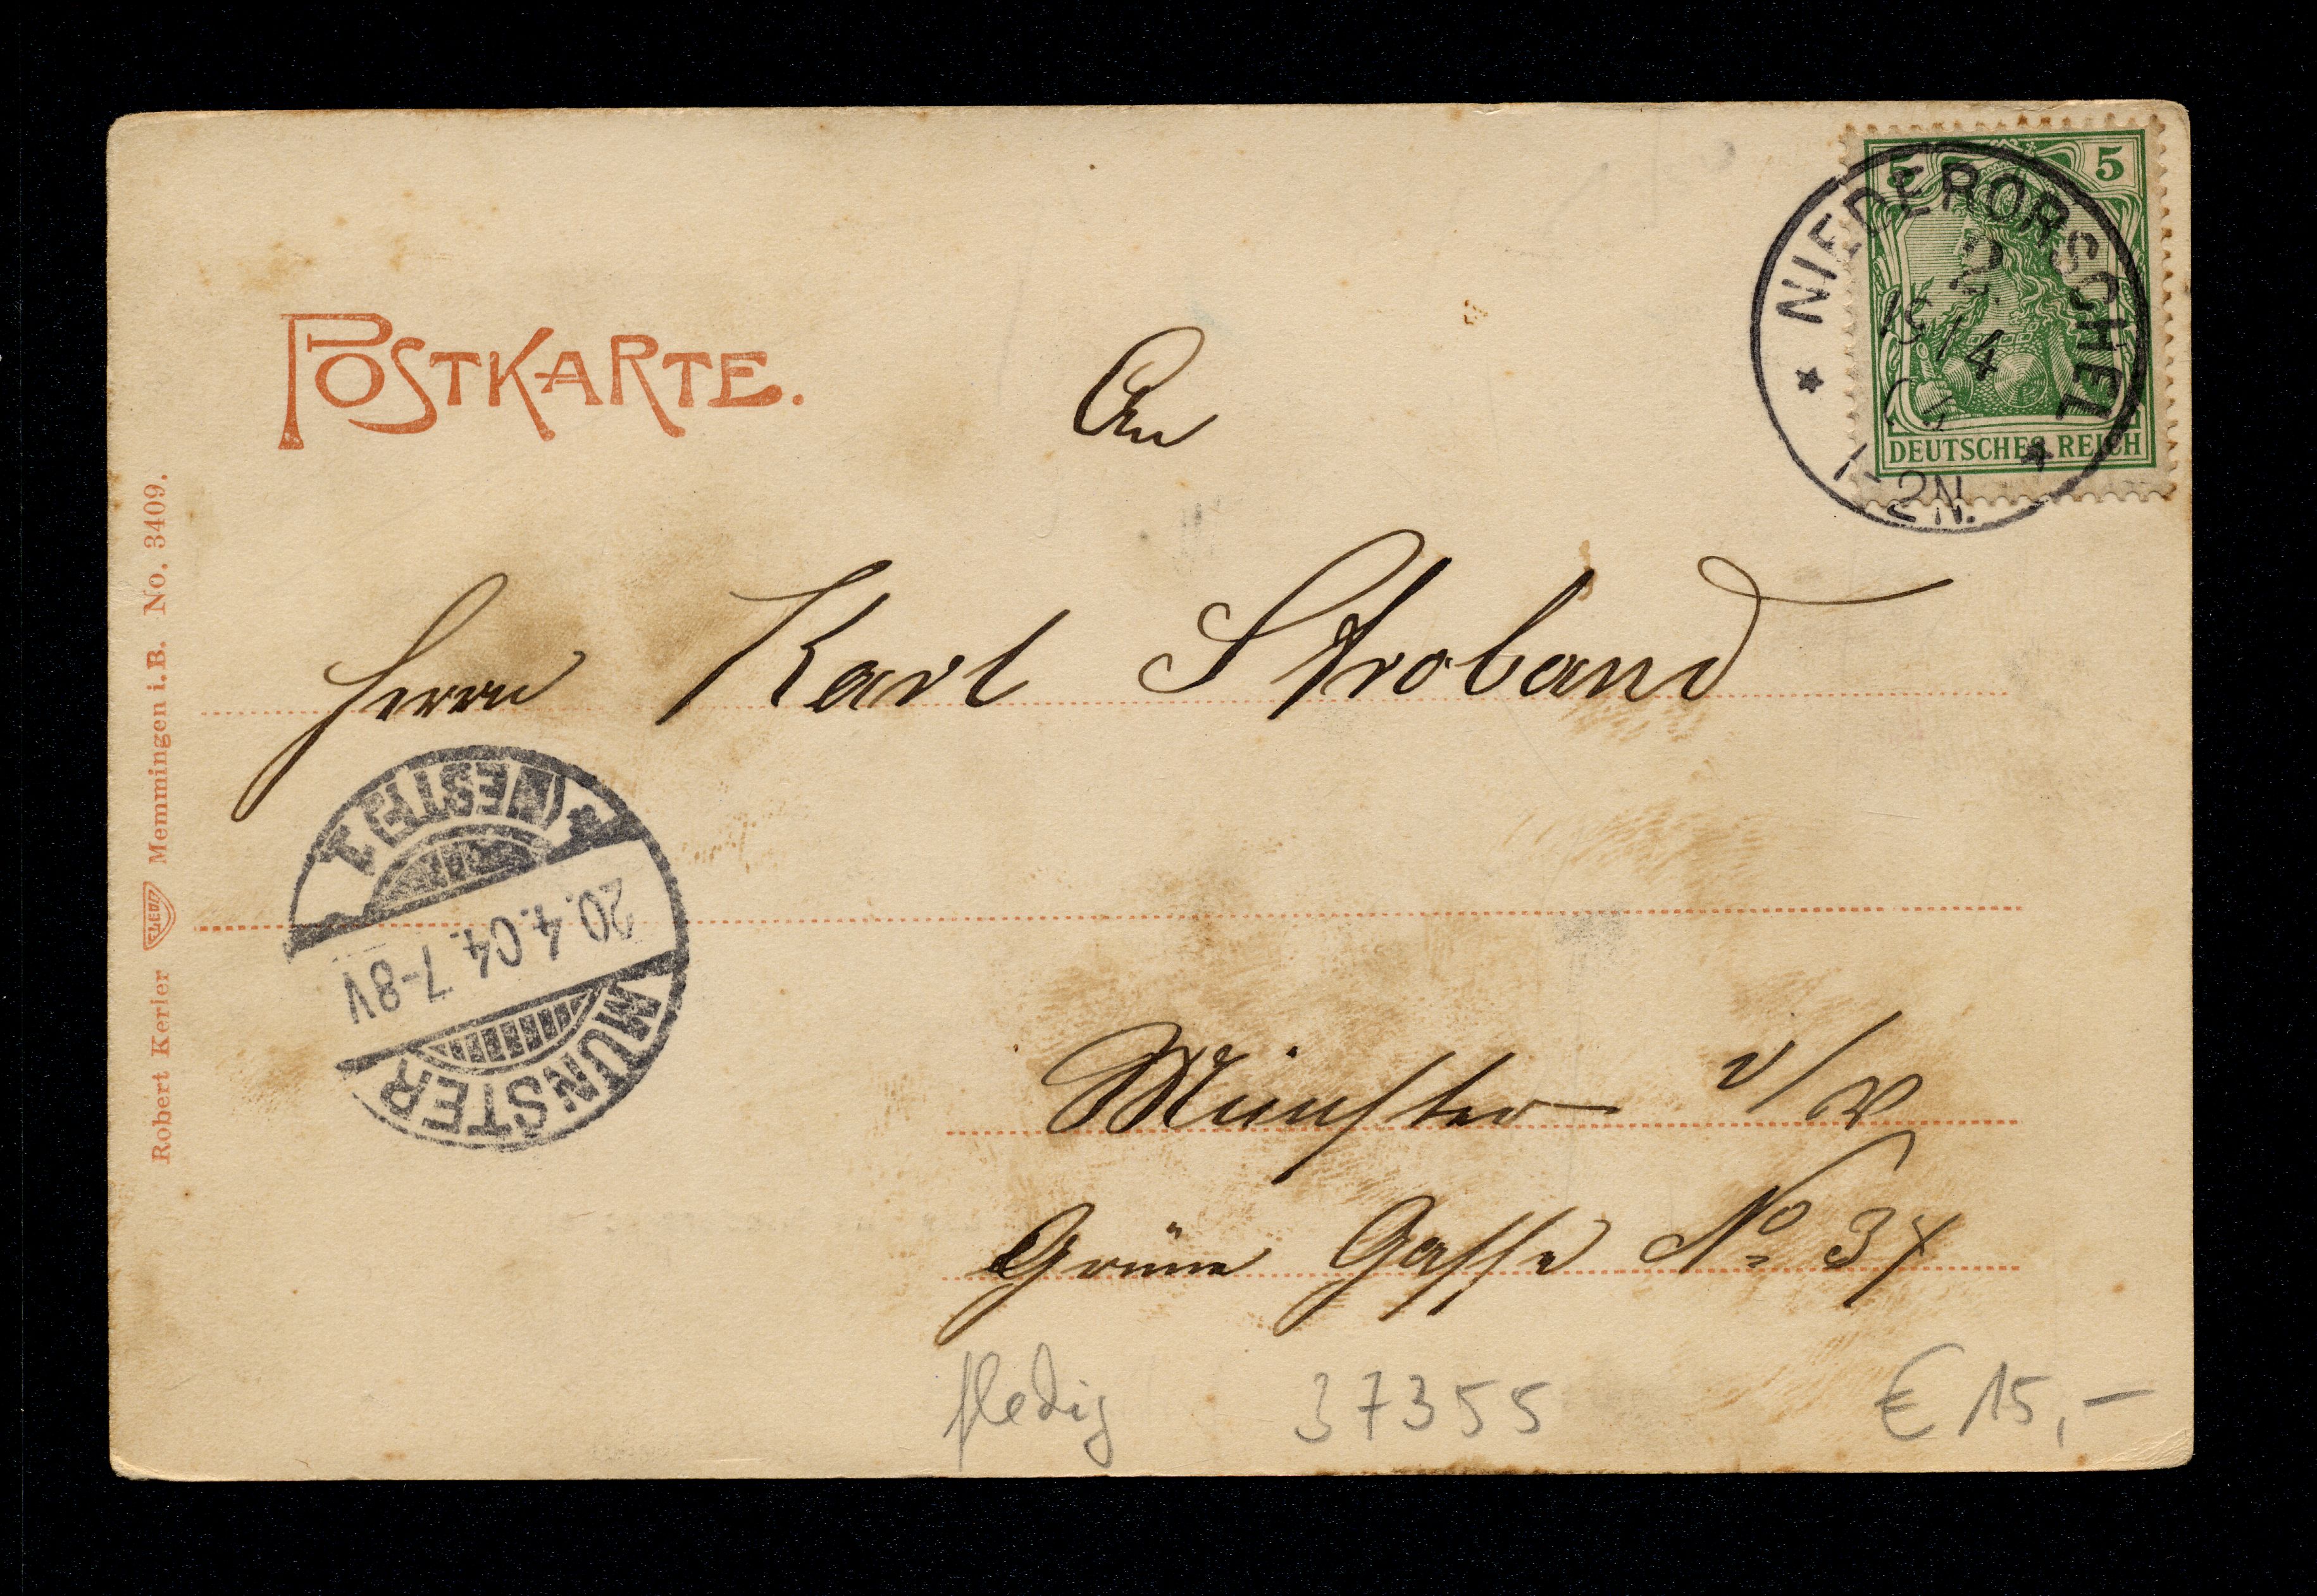 POSTKARTE.
An
Herrn Karl Stroband
Münster i/W
Grüne Gasse No 37
fledig 37355 € 15,-
5 5
DEUTSCHES REICH
* NIEDERORSCHEL *
2
19/4
04
1-2N.
MÜNSTER
20.4.04. 7-8V
(WESTF.) 1.
Robert Kerler Memmingen i.B. No. 3409.